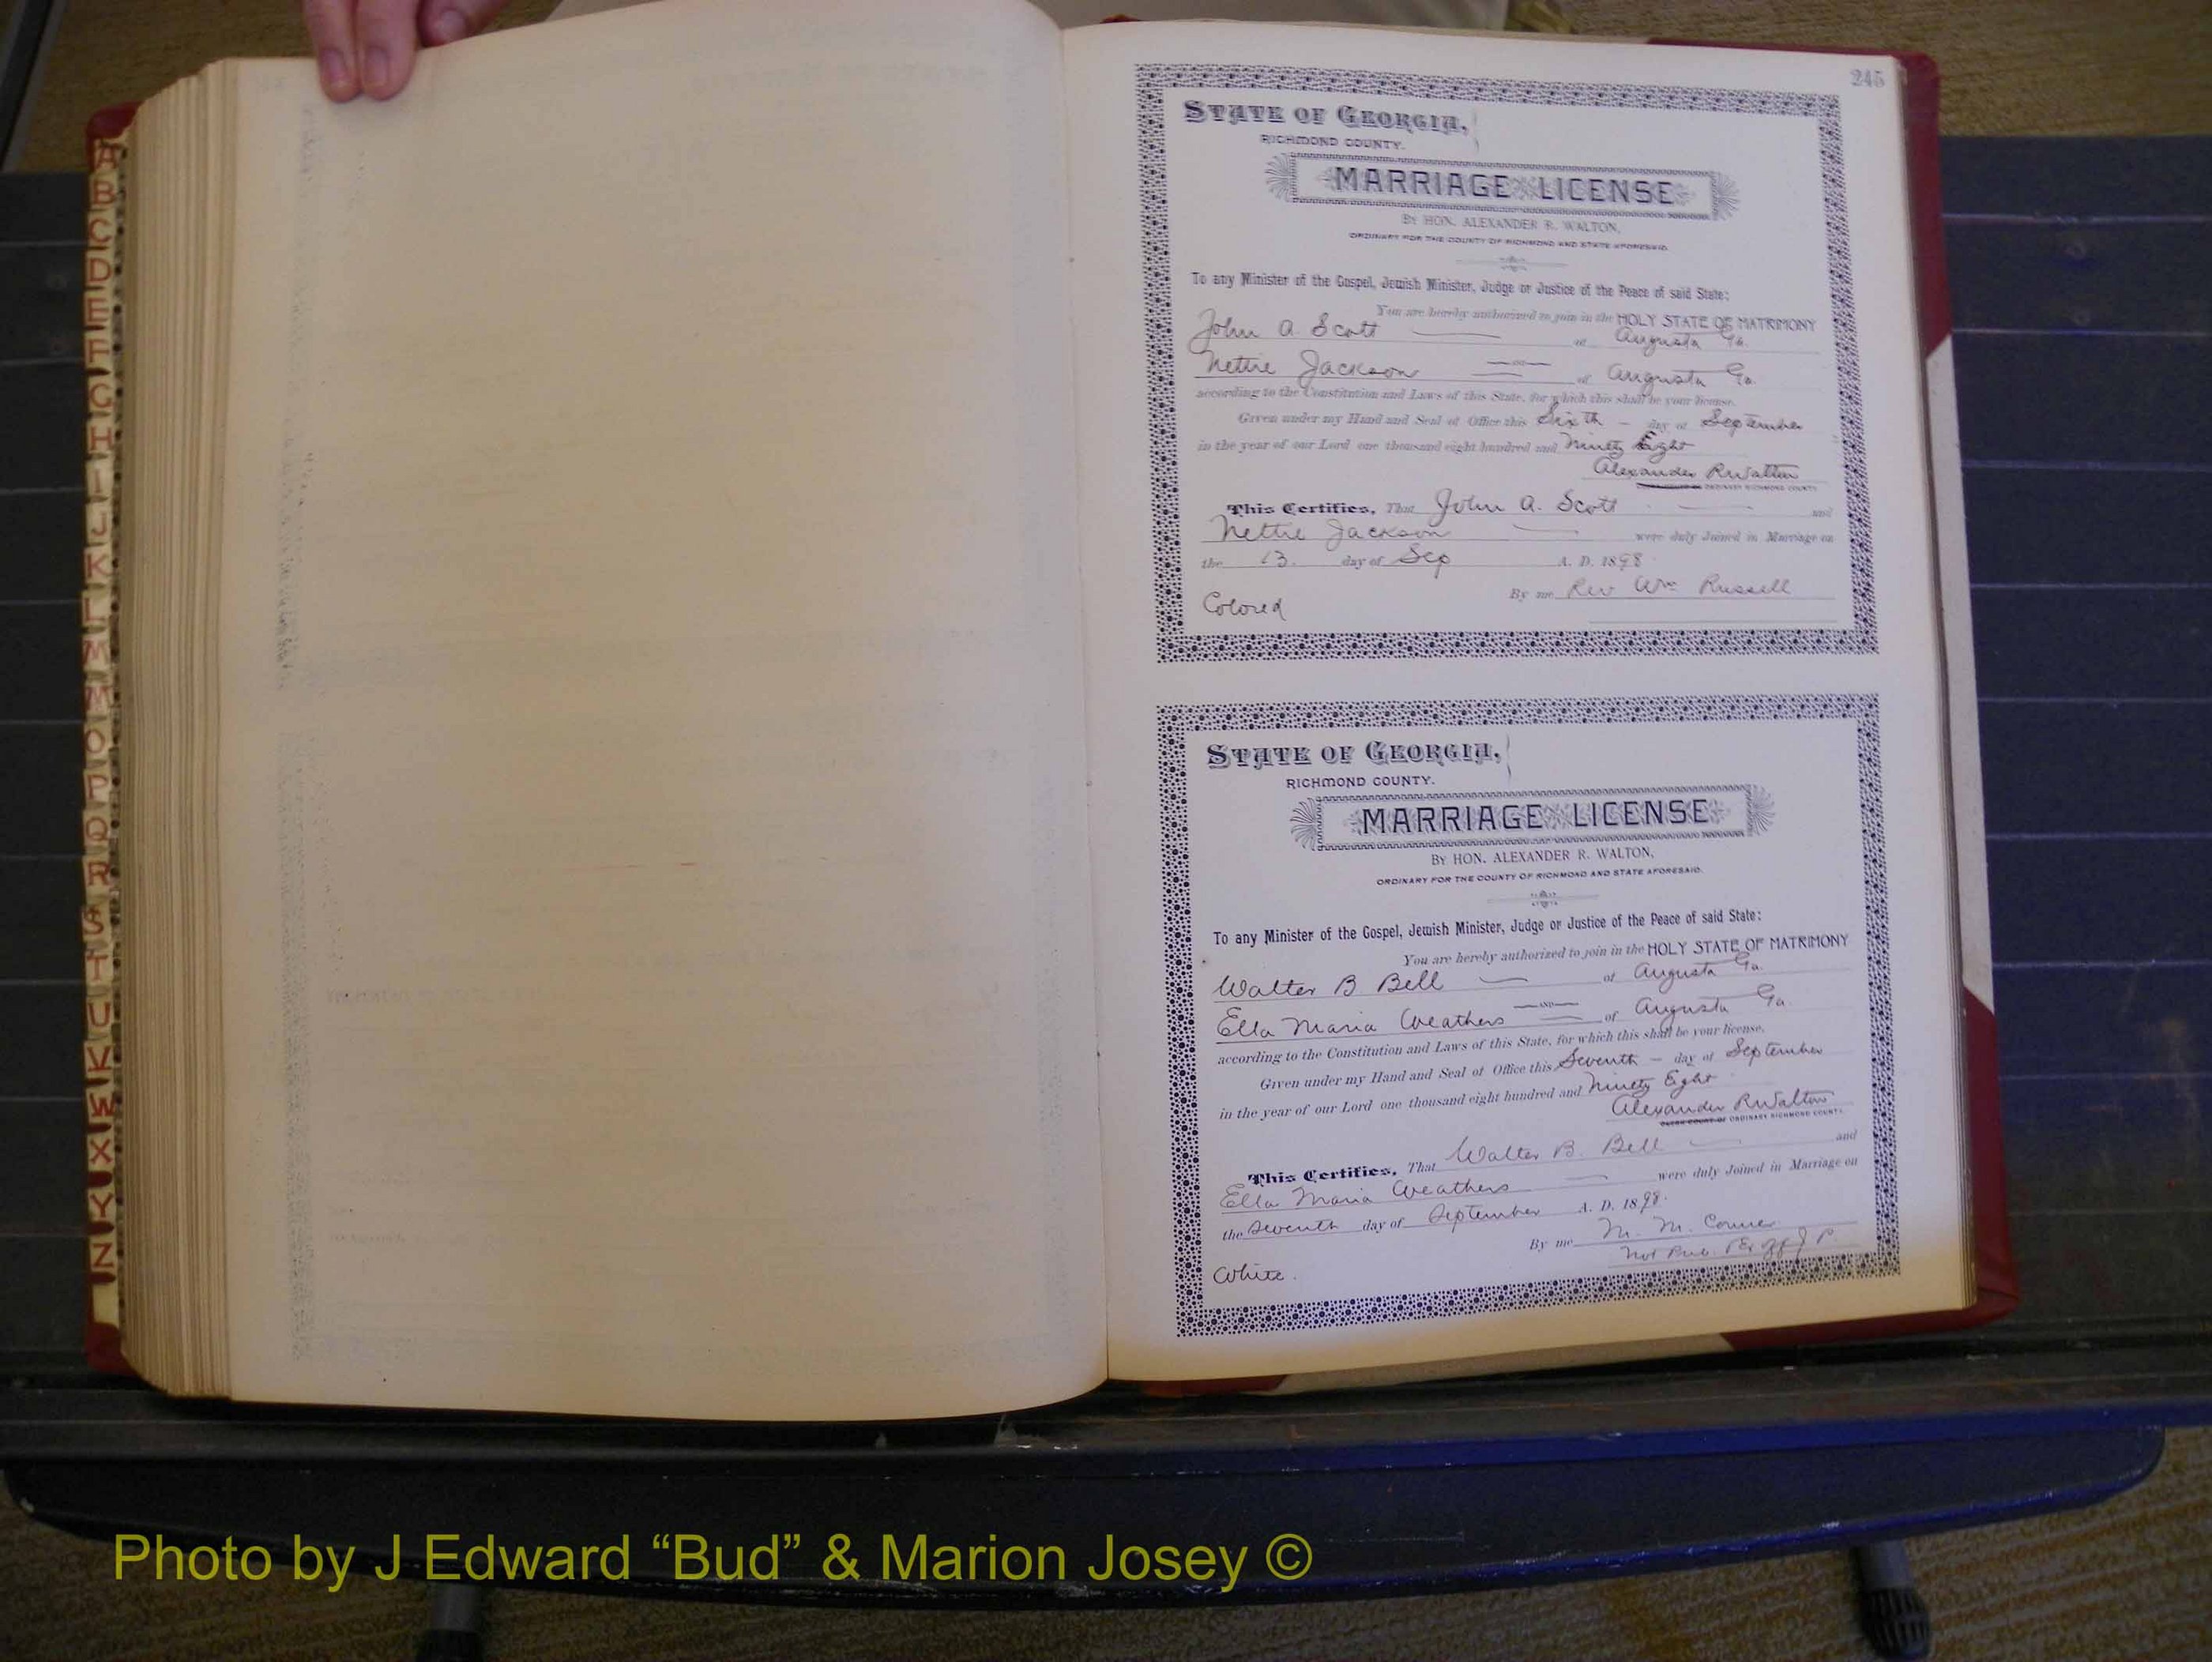 A
B
C
D
E
F
G
H
I
J
K
L
M
M
O
P
Q
R
S
T
U
V
W
X
Y
Z
245
STATE OF GEORGIA,
RICHMOND COUNTY.
MARRIAGE LICENSE
BY HON. ALEXANDER R. WALTON,
ORDINARY FOR THE COUNTY OF RICHMOND AND STATE AFORESAID.
To any Minister of the Gospel, Jewish Minister, Judge or Justice of the Peace of said State:
You are hereby authorized to join in the HOLY STATE OF MATRIMONY
John A. Scott of Augusta Ga.
AND
Nettie Jackson of Augusta Ga.
according to the Constitution and Laws of this State, for which this shall be your license.
Given under my Hand and Seal of Office this Sixth – day of September
in the year of our Lord one thousand eight hundred and Ninety Eight
Alexander R Walton
ORDINARY RICHMOND COUNTY
This Certifies, That John A. Scott and
Nettie Jackson were duly Joined in Marriage on
the 13. day of Sep A. D. 1898
By me Rev Wm Russell
Colored
STATE OF GEORGIA,
RICHMOND COUNTY.
MARRIAGE LICENSE
BY HON. ALEXANDER R. WALTON,
ORDINARY FOR THE COUNTY OF RICHMOND AND STATE AFORESAID.
To any Minister of the Gospel, Jewish Minister, Judge or Justice of the Peace of said State:
You are hereby authorized to join in the HOLY STATE OF MATRIMONY
Walter B Bell of Augusta Ga.
AND
Ella Maria Weathers of Augusta Ga.
according to the Constitution and Laws of this State, for which this shall be your license.
Given under my Hand and Seal of Office this Seventh – day of September
in the year of our Lord one thousand eight hundred and Ninety Eight
Alexander R Walton
CLERK COURT OF ORDINARY RICHMOND COUNTY
This Certifies, That Walter B. Bell and
Ella Maria Weathers were duly Joined in Marriage on
the Seventh day of September A. D. 1898.
By me M. M. Conner
Not Pub. Ex off J P.
White.
Photo by J Edward “Bud” & Marion Josey ©